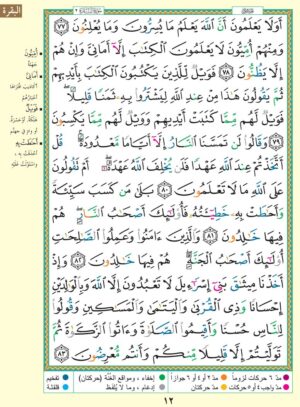 البقرة
أَوَلَا يَعْلَمُونَ أَنَّ اللَّهَ يَعْلَمُ مَا يُسِرُّونَ وَمَا يُعْلِنُونَ ٧٧
وَمِنْهُمْ أُمِّيُّونَ لَا يَعْلَمُونَ الْكِتَابَ إِلَّا أَمَانِيَّ وَإِنْ هُمْ
إِلَّا يَظُنُّونَ ٧٨ فَوَيْلٌ لِّلَّذِينَ يَكْتُبُونَ الْكِتَابَ بِأَيْدِيهِمْ
ثُمَّ يَقُولُونَ هَٰذَا مِنْ عِندِ اللَّهِ لِيَشْتَرُوا بِهِ ثَمَنًا قَلِيلًا
فَوَيْلٌ لَّهُم مِّمَّا كَتَبَتْ أَيْدِيهِمْ وَوَيْلٌ لَّهُم مِّمَّا يَكْسِبُونَ
٧٩ وَقَالُوا لَن تَمَسَّنَا النَّارُ إِلَّا أَيَّامًا مَّعْدُودَةً قُلْ
أَتَّخَذْتُمْ عِندَ اللَّهِ عَهْدًا فَلَن يُخْلِفَ اللَّهُ عَهْدَهُ أَمْ تَقُولُونَ
عَلَى اللَّهِ مَا لَا تَعْلَمُونَ ٨٠ بَلَىٰ مَن كَسَبَ سَيِّئَةً
وَأَحَاطَتْ بِهِ خَطِيئَتُهُ فَأُولَٰئِكَ أَصْحَابُ النَّارِ هُمْ
فِيهَا خَالِدُونَ ٨١ وَالَّذِينَ آمَنُوا وَعَمِلُوا الصَّالِحَاتِ
أُولَٰئِكَ أَصْحَابُ الْجَنَّةِ هُمْ فِيهَا خَالِدُونَ ٨٢ وَإِذْ
أَخَذْنَا مِيثَاقَ بَنِي إِسْرَائِيلَ لَا تَعْبُدُونَ إِلَّا اللَّهَ وَبِالْوَالِدَيْنِ
إِحْسَانًا وَذِي الْقُرْبَىٰ وَالْيَتَامَىٰ وَالْمَسَاكِينِ وَقُولُوا
لِلنَّاسِ حُسْنًا وَأَقِيمُوا الصَّلَاةَ وَآتُوا الزَّكَاةَ ثُمَّ
تَوَلَّيْتُمْ إِلَّا قَلِيلًا مِّنكُمْ وَأَنتُم مُّعْرِضُونَ ٨٣
أُمِّيُّونَ
أَمَانِيَّ
فَوَيْلٌ
أَحَاطَتْ بِهِ
مدّ ٦ حركات لزوماً
مدّ ٢ أو ٤ أو ٦ جوازاً
إخفاء، ومواقع الغُنَّة (حركتان)
تفخيم
مدّ واجب ٤ أو ٥ حركات
مدّ حركتان
إدغام، وما لا يُلفَظ
قلقلة
١٢